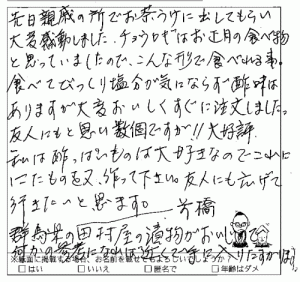 先日親戚の所でお茶うけに出してもらい
大変感動しました。チョウロギはお正月の食べ物
と思っていましたので、こんな形で食べれる事。
食べてびっくり塩分が気にならず酢味は
ありますが大変おいしくすぐに注文しました。
友人にもと思い数個ですが!!大好評
私は酢っぱいものは大好きなのでこれに
にたものを又、作って下さい。友人にも広げて
行きたいと思います。 前橋
群馬県の田村屋の漬物がおいしくて
何かの参考になれば近くで手に入りたすかります
※紙面に掲載する場合、お名前を載せてもよろしいでしょうか?
□はい □いいえ □匿名で □年齢はダメ